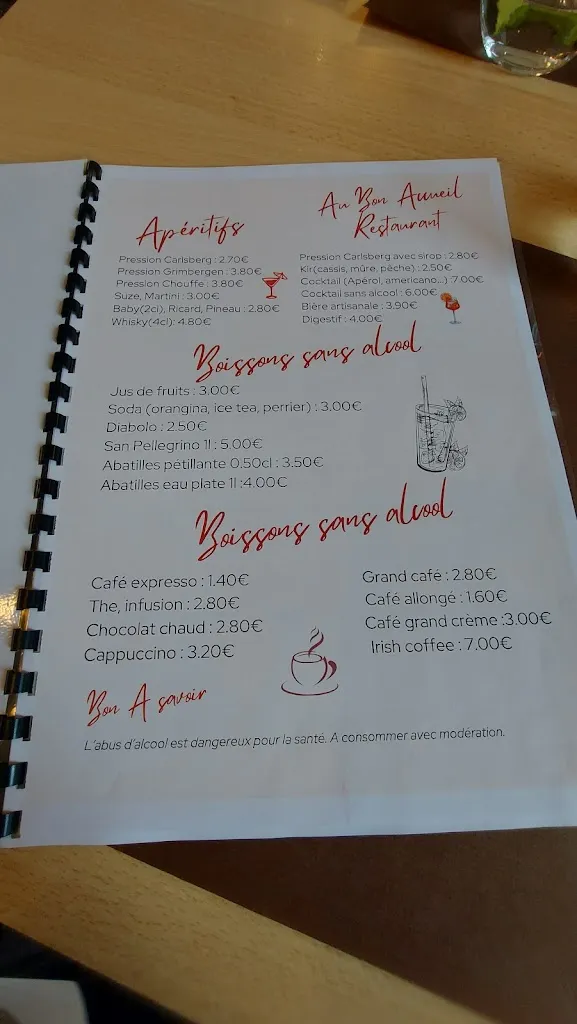 Au Bon Accueil
Restaurant
Apéritifs
Pression Carlsberg : 2.70€
Pression Grimbergen : 3.80€
Pression Chouffe : 3.80€
Suze, Martini : 3.00€
Baby(2cl), Ricard, Pineau : 2.80€
Whisky(4cl): 4.80€
Pression Carlsberg avec sirop : 2.80€
Kir(cassis, mûre, pêche) : 2.50€
Cocktail (Apérol, americano...) :7.00€
Cocktail sans alcool : 6.00€
Bière artisanale : 3.90€
Digestif : 4.00€
Boissons sans alcool
Jus de fruits : 3.00€
Soda (orangina, ice tea, perrier) : 3.00€
Diabolo : 2.50€
San Pellegrino 1l : 5.00€
Abatilles pétillante 0.50cl : 3.50€
Abatilles eau plate 1l :4.00€
Boissons sans alcool
Café expresso : 1.40€
The, infusion : 2.80€
Chocolat chaud : 2.80€
Cappuccino : 3.20€
Grand café : 2.80€
Café allongé : 1.60€
Café grand crème :3.00€
Irish coffee : 7.00€
Bon A savoir
L'abus d'alcool est dangereux pour la santé. A consommer avec modération.